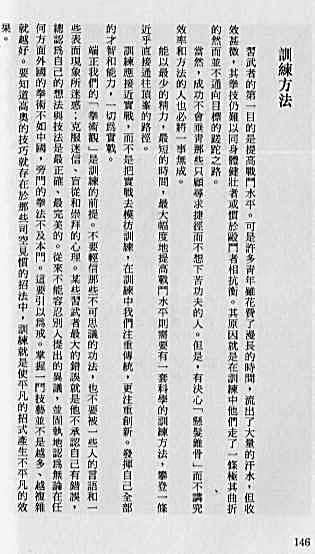 訓練方法
習武者的第一目的是提高戰鬥水平。可是許多青年雖花費了漫長的時間，流出了大量的汗水，但收
效甚微，其拳技仍難以同身體健壯者或慣於毆鬥者相抗衡。其原因就是在訓練中他們走了一條極其曲折
的然而並不通向目標的蹉跎之路。
當然，成功不會垂青那些只顧尋求捷徑而不想下苦功夫的人。但是，有決心「懸髮錐骨」而不講究
效率和方法的人也必將一事無成。
能以最少的精力，最短的時間，最大幅度地提高戰鬥水平則需要有一套科學的訓練方法，攀登一條
近乎直接通往頂峯的路徑。
訓練應接近實戰，而不是把實戰去模仿訓練，在訓練中我們注重傳統，更注重創新。發揮自己全部
的才智和能力，一切為實戰。
端正我們的「拳術觀」是訓練的前提。不要輕信那些不可思議的功法，也不要被一些人的言語和一
些表面現象所迷惑；克服迷信、盲從和崇拜的心理。某些習武者最大的錯誤就是他不承認自己有錯誤，
總認為自己的想法與技法是最正確、最完美的。從來不能容忍別人提出的異議，並固執地認為無論在任
何方面外國的拳術不如中國，旁門的拳法不及本門。這要引以為戒。掌握一門技藝並不是越多、越複雜
就越好。要知道高奧的技巧就存在於那些司空見慣的招法中，訓練就是使平凡的招式產生不平凡的效
果。
146